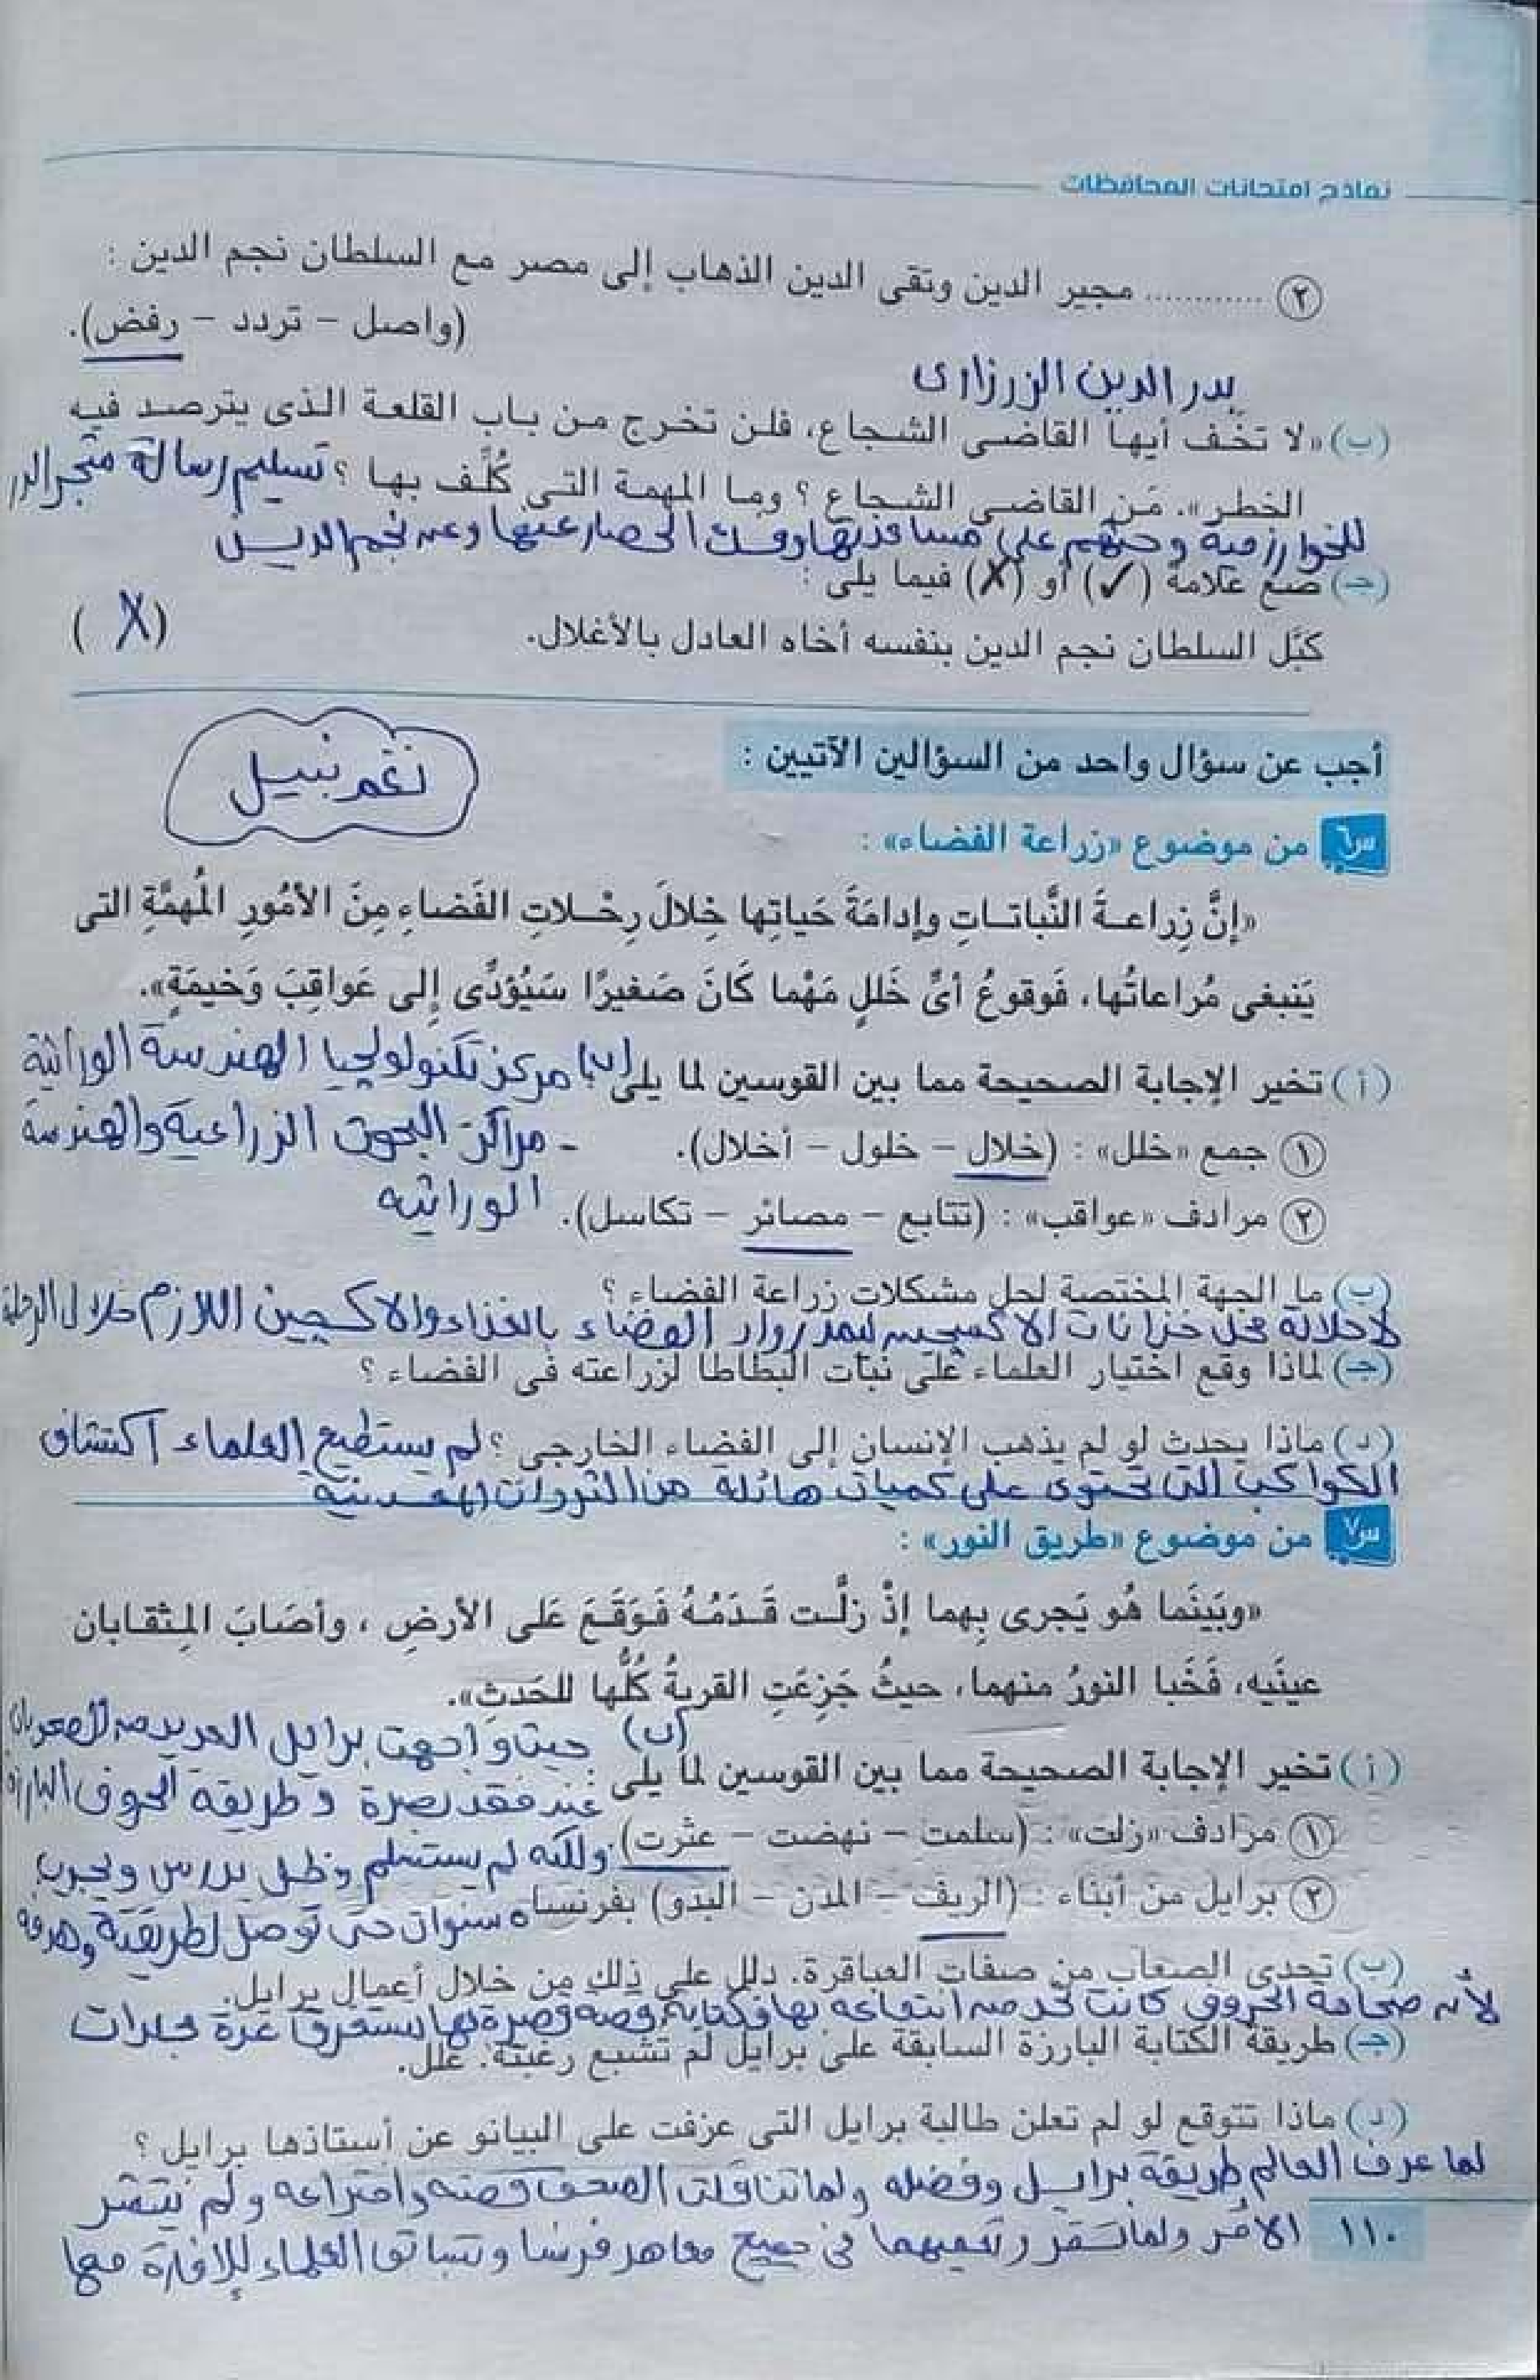 نماذج امتحانات المحافظات
٢ ............ مجير الدين وتقى الدين الذهاب إلى مصر مع السلطان نجم الدين :
(واصل – تردد – رفض).
بدر الدين الزرزارى
(ب) «لا تخف أيها القاضى الشجاع، فلن تخرج من باب القلعة الذى يترصد فيه
الخطر». مَن القاضى الشجاع ؟ وما المهمة التى كُلِّف بها ؟ تسليم رسالة شجر الدر
للخوارزمية وحثهم على مساندتها وفك الحصار عنها وعن نجم الدين
(جـ) ضع علامة (✓) أو (✗) فيما يلى :
كبَّل السلطان نجم الدين بنفسه أخاه العادل بالأغلال. (X)
أجب عن سؤال واحد من السؤالين الآتيين :
نغم نبيل
س٦ من موضوع «زراعة الفضاء» :
«إنَّ زِراعـةَ النَّباتـاتِ وإدامَةَ حَياتِها خِلالَ رِحْـلاتِ الفَضاءِ مِنَ الأمُورِ المُهمَّةِ التى
يَنبغى مُراعاتُها، فَوقوعُ أىِّ خَللٍ مَهْما كَانَ صَغيرًا سَيُؤدِّى إلى عَواقِبَ وَخيمَةٍ».
(أ) تخير الإجابة الصحيحة مما بين القوسين لما يلى (ب) مركز تكنولوجيا الهندسة الوراثية
١ جمع «خلل» : (خلال – خلول – أخلال). - مراكز البحوث الزراعية والهندسة
٢ مرادف «عواقب» : (تتابع – مصائر – تكاسل). الوراثيه
(ب) ما الجهة المختصة لحل مشكلات زراعة الفضاء ؟
لاحلاله محل خزانات الاكسجين ليمد رواد الفضاء بالغذاء والاكسجين اللازم خلال الرحلة
(جـ) لماذا وقع اختيار العلماء على نبات البطاطا لزراعته فى الفضاء ؟
(د) ماذا يحدث لو لم يذهب الإنسان إلى الفضاء الخارجى ؟ لم يستطيع العلماء اكتشاف
الكواكب التى تحتوى على كميات هائلة من الثروات المعدنية
س٧ من موضوع «طريق النور» :
«وبَينَما هُو يَجرى بِهما إذْ زلَّـت قَـدَمُـهُ فَـوَقَـعَ عَلى الأرضِ ، وأصَابَ المِثقـابان
عينَيه، فَخَبا النورُ منهما، حيثُ جَزِعَتِ القريةُ كُلُّها للحَدثِ».
(ب) حيث واجهت برايل العديد من الصعوبات
(أ) تخير الإجابة الصحيحة مما بين القوسين لما يلى عند فقد بصرة و طريقة الحروف البارزة
١ مرادف «زلت» : (سلمت – نهضت – عثرت). ولكنه لم يستسلم وظل يدرس ويجرب
٢ برايل من أبناء : (الريف – المدن – البدو) بفرنسا ٥ سنوات حتى توصل لطريقتة وهدفه
(ب) تحدى الصعاب من صفات العباقرة. دلل على ذلك من خلال أعمال برايل.
لأن ضخامة الحروف كانت تحد من انتفاعه بها فكتابة قصه قصيرة بها يستغرق عدة مجلدات
(جـ) طريقة الكتابة البارزة السابقة على برايل لم تشبع رغبته. علل.
(د) ماذا تتوقع لو لم تعلن طالبة برايل التى عزفت على البيانو عن أستاذها برايل ؟
لما عرف العالم طريقة برايل وفضله ولما تناقلت الصحف قصته واختراعه ولم ينتشر
الأمر ولما تقرر تعميمها فى جميع معاهد فرنسا وتسابق العلماء للإفادة منها
١١٠